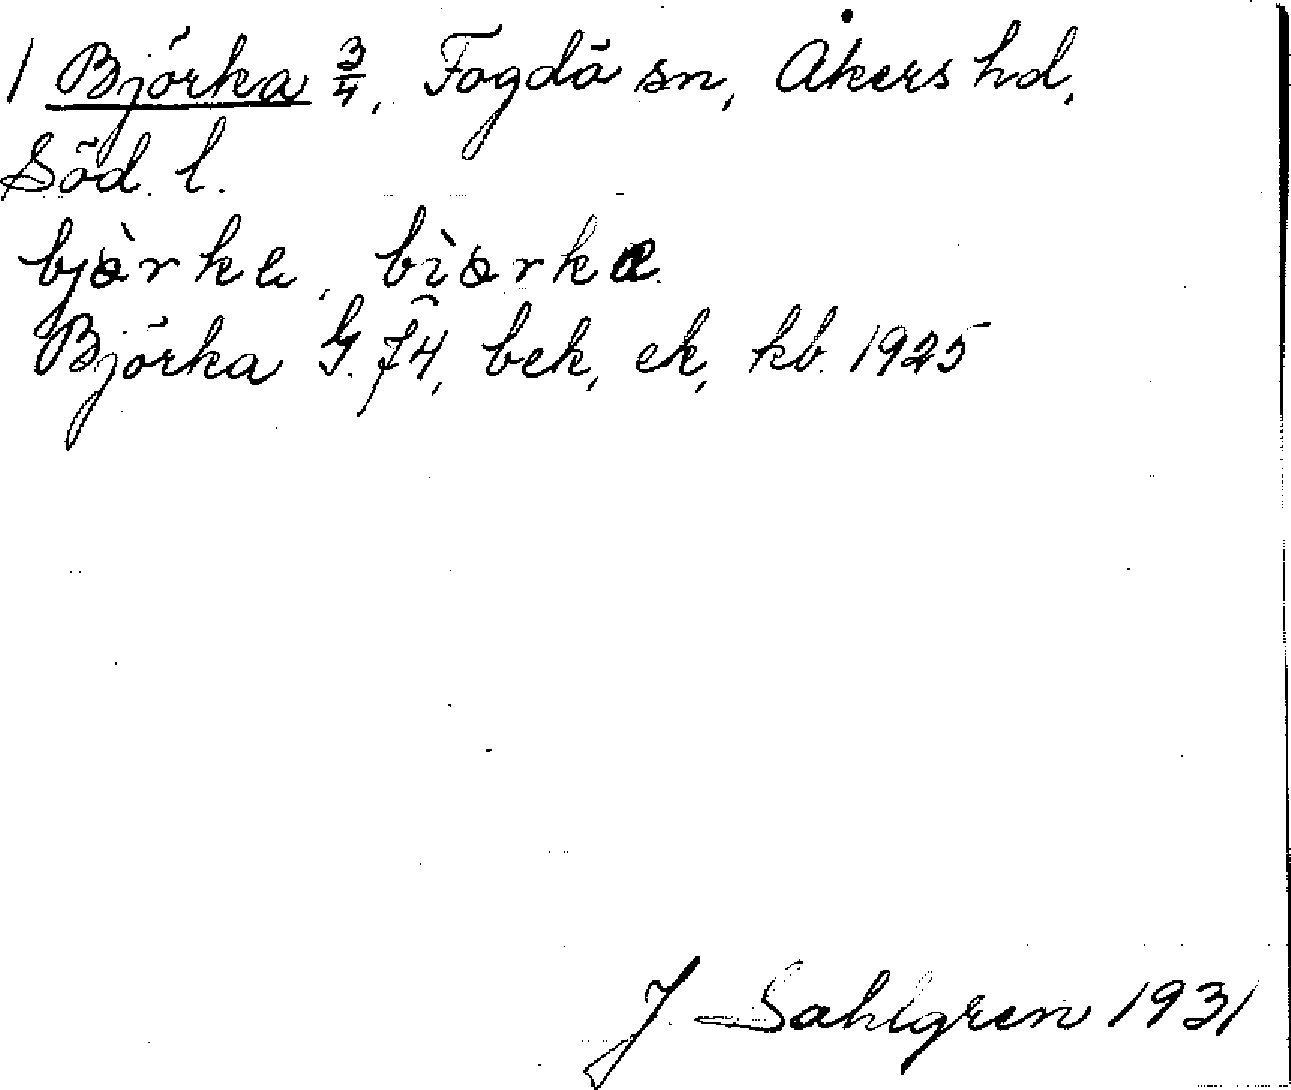 1 Björka 3/4, Fogdö sn, Åkers hd,
Söd. l.
bjòrka, bìorka.
Björka G. J4, bek, ek, kb. 1925
J. Sahlgren 1931